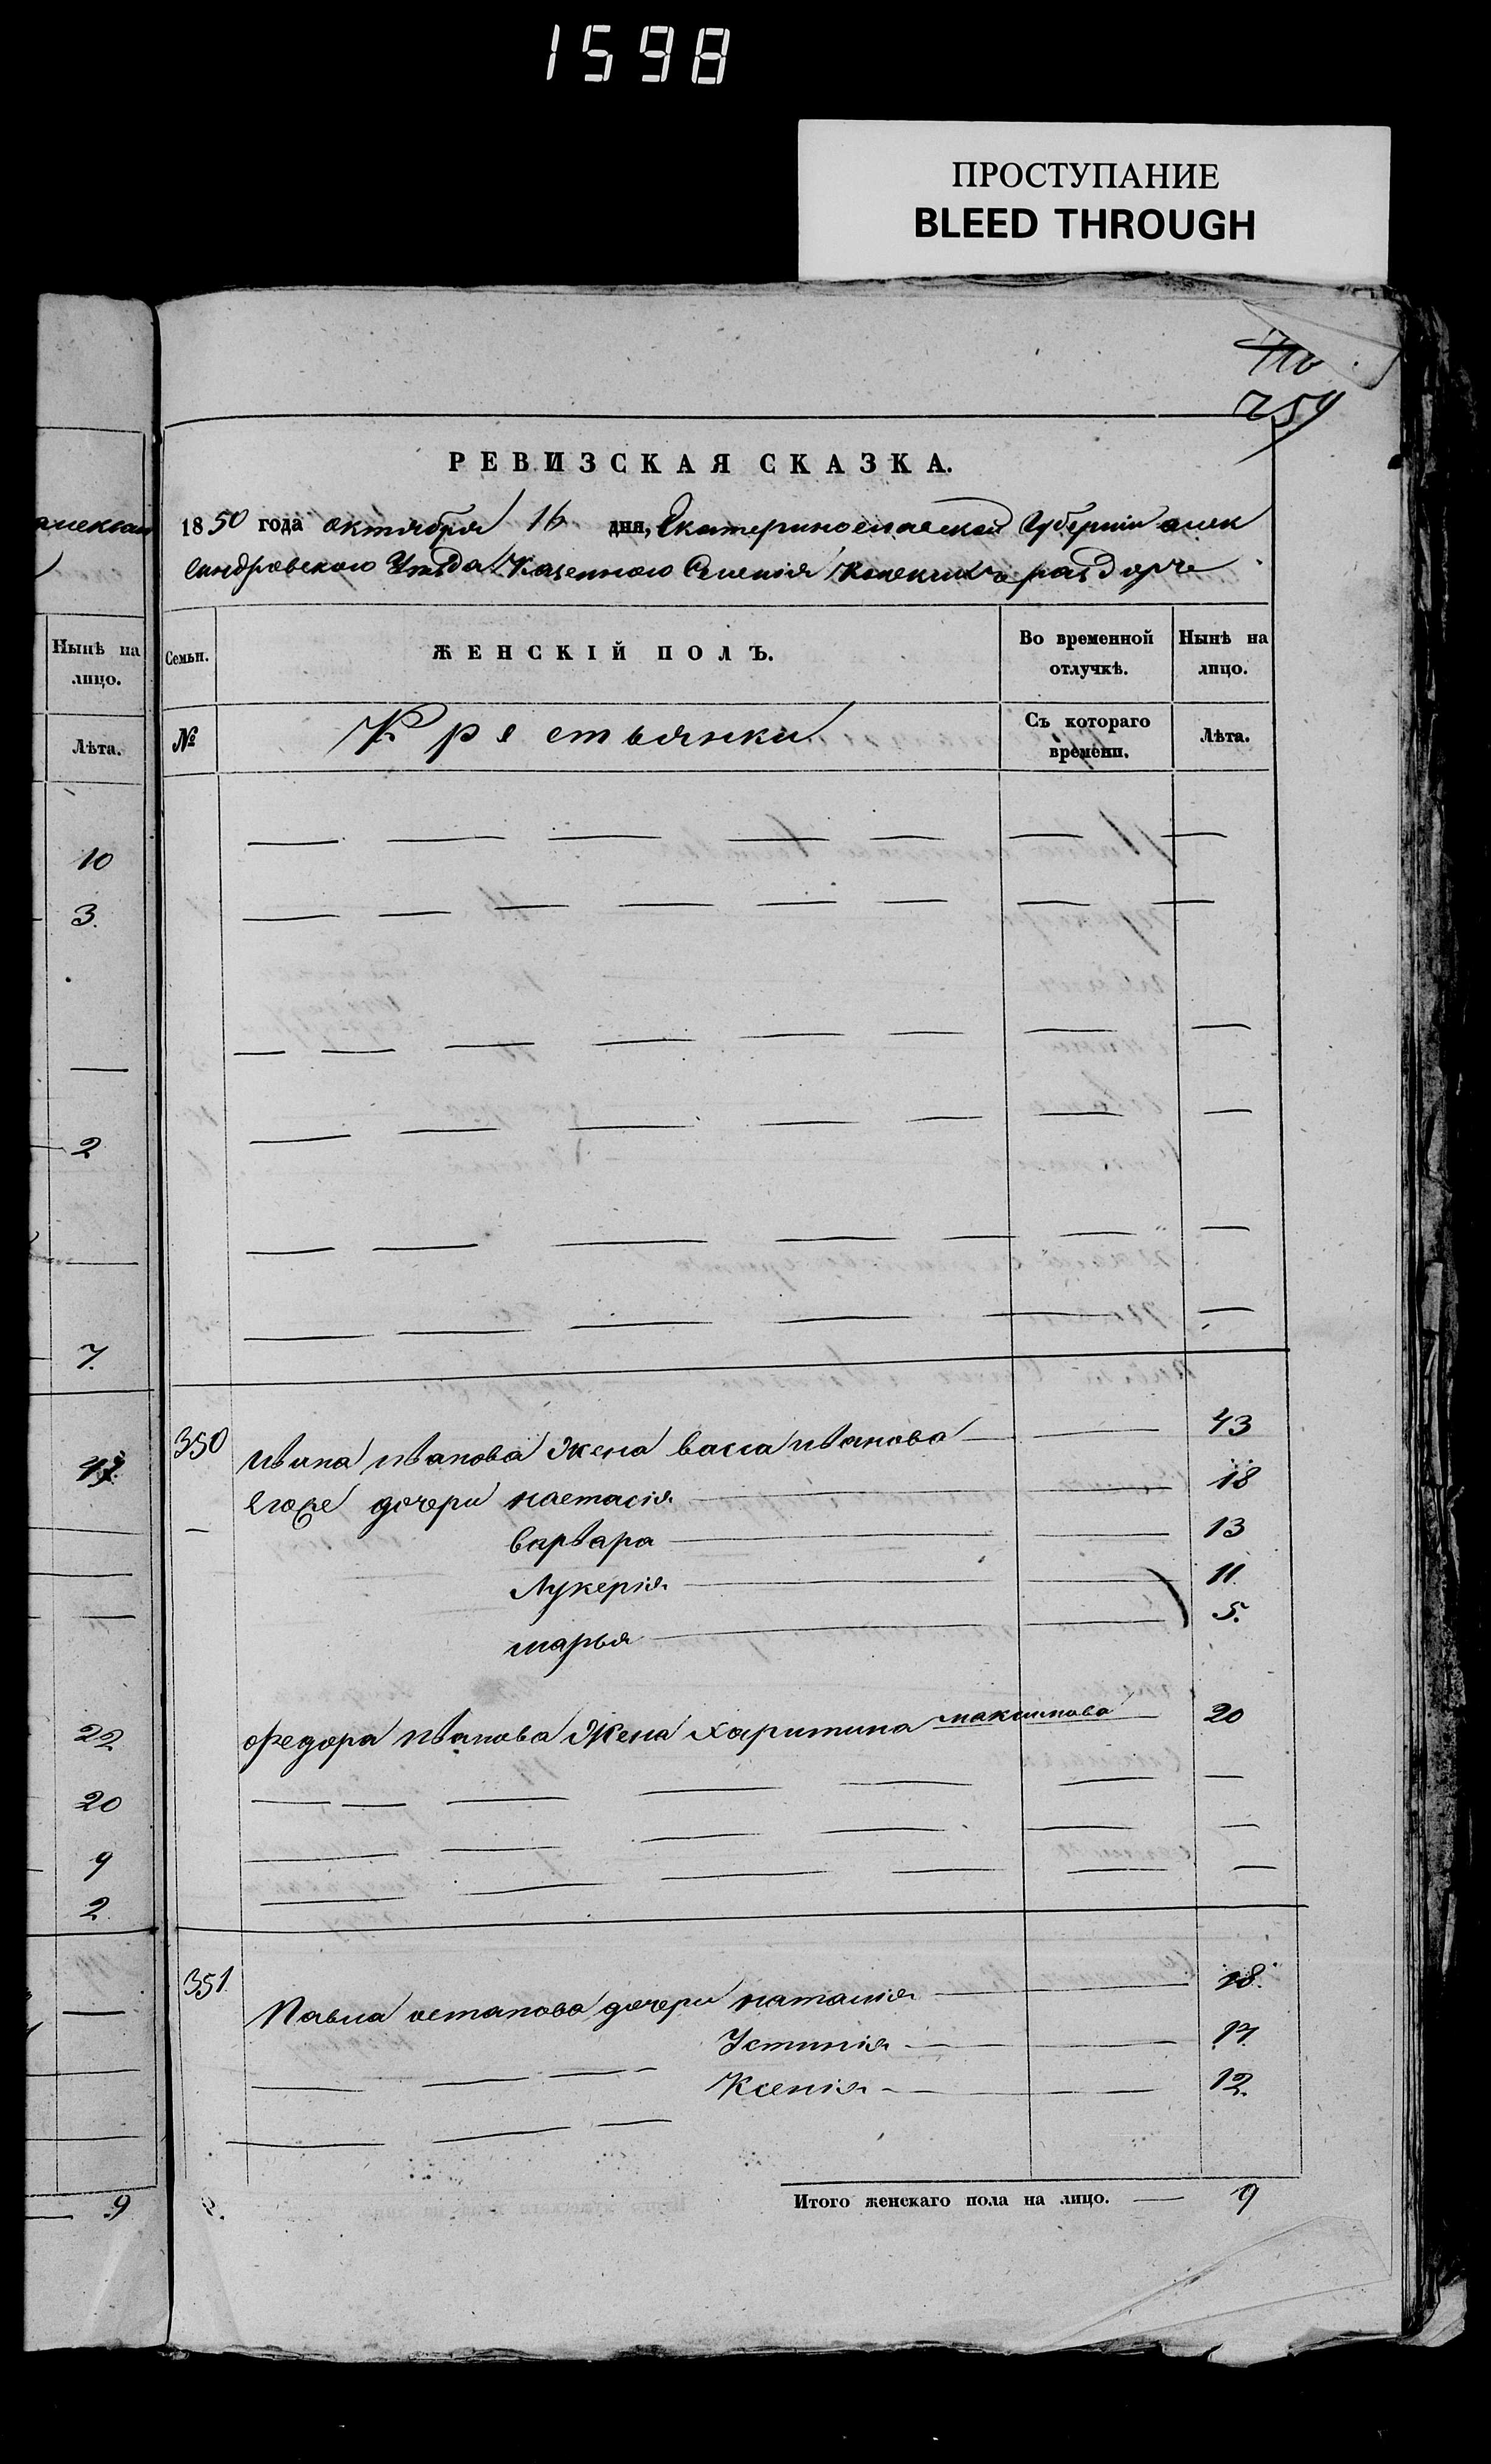 1598
ПРОСТУПАНИЕ
BLEED THROUGH
710
259
РЕВИЗСКАЯ СКАЗКА.
1850 года октября 16 дня, Екатеринославской Губернии алек
сандровского Уезда Казенного Селения Конских раздоръ
Семьи.
ЖЕНСКІЙ ПОЛЪ.
Во временной отлучкѣ.
Нынѣ на лицо.
№
Крестьянки
Съ котораго времени.
Лѣта.
350 Ивана Иванова Жена васса Иванова 43
Егоже дочери настасія 18
варвара 13
Лукерія 11.
марья 5.
Федора Иванова Жена харитина максимова 20
351 Павла остапова дочери наталія 18.
Устинія 17.
Ксенія 12.
Итого женскаго пола на лицо. 9
Нынѣ на
лицо.
Лѣта.
10
3.
2
7.
22
20
9
2
9